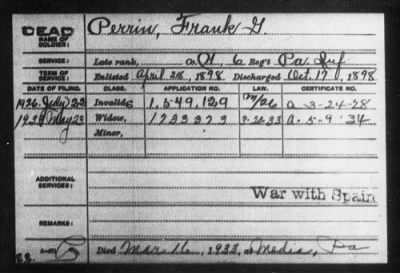 DEAD
NAME OF SOLDIER: Perrin, Frank G.
SERVICE: Late rank, Co. H, 6 Reg't Pa. Inf.
TERM OF SERVICE: Enlisted April 28, 1898 Discharged Oct. 17, 1898
DATE OF FILING. CLASS. APPLICATION NO. LAW. CERTIFICATE NO.
1926 July 22 Invalid, 1,549,129
Widow, 1733373
Minor,
ADDITIONAL SERVICES:
War with Spain
REMARKS:
Died Mar. 16, 1933, at Media, Pa